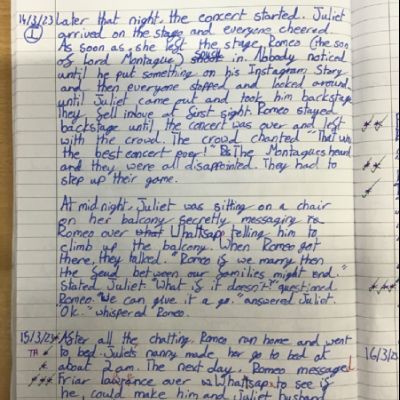 14/3/23 Later that night, the concert started. Juliet
① arrived on the stage and everyone cheered.
As soon as, she left the stage, Romeo (the son
of Lord Montague) snuck in. Nobody noticed
until he put something on his Instagram Story
and then everyone stopped and looked around
until Juliet came out and took him backstage
They fell inlove at first sight. Romeo stayed
backstage until the concert was over and left
with the crowd. The crowd chanted "That was
the best concert ever!" The Montagues heard
and they were all disappointed. They had to
step up their game.
At midnight, Juliet was sitting on a chair
on her balcony secretly messaging
Romeo over what Whatsapp telling him to
climb up the balcony. When Romeo got
there, they talked. "Romeo if we marry then
the feud between our families might end."
stated Juliet. "What if it doesn't?" questioned
Romeo. "We can give it a go." answered Juliet.
Ok." whispered Romeo.
15/3/23 After all the chatting. Romeo ran home and went
TA to bed. Juliets nanny made her go to bed at
about 2am. The next day, Romeo messaged
Friar lawrance over Whatsapp to see if 16/3/
he, could make him and Juliet husband